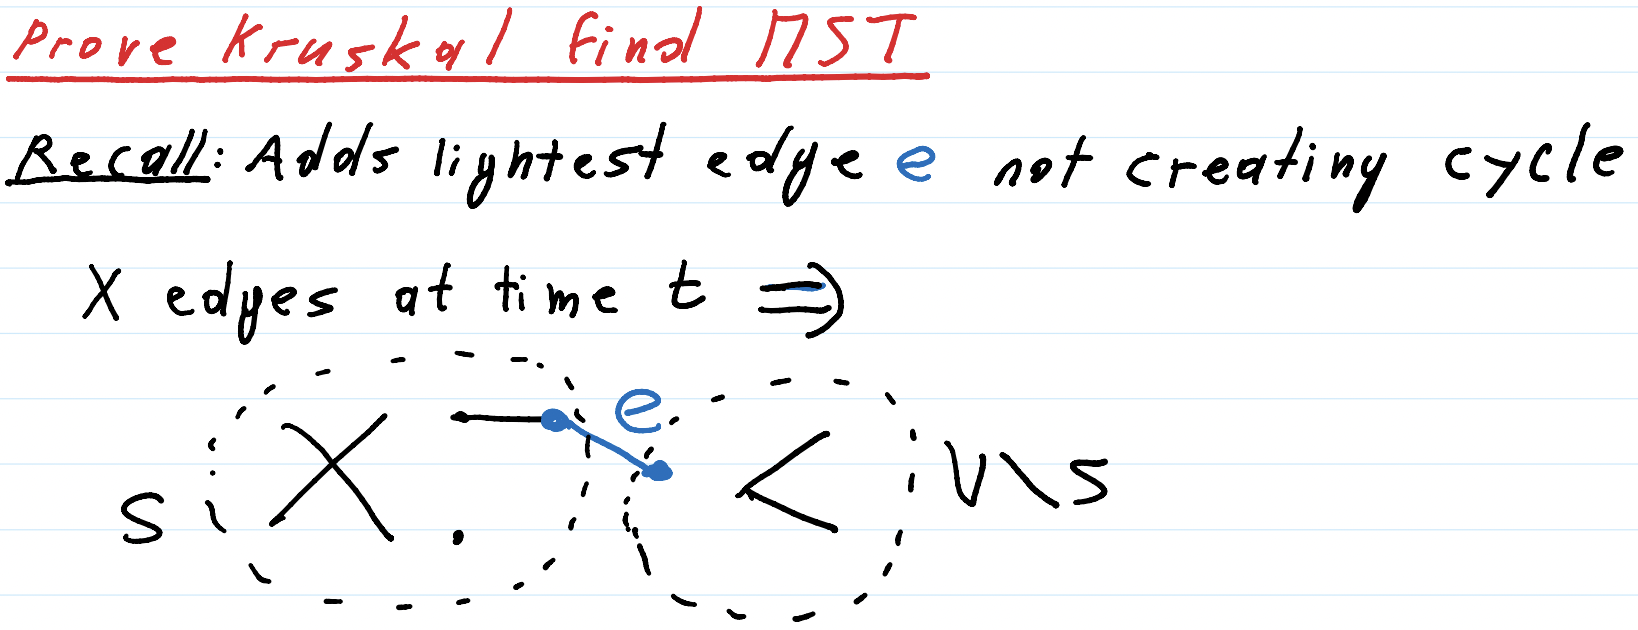 Prove Kruskal find MST
Recall: Adds lightest edge e not creating cycle
X edges at time t ⇒
e
S
V\S